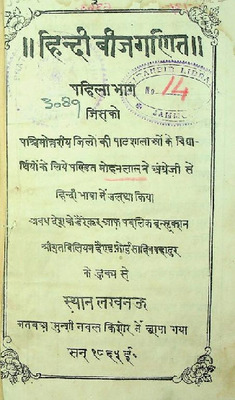 ॥ हिन्दी बीजगणित ॥
पहिला भाग
3089
No. 14
जिसको
पश्चिमोत्तरीय जिलों की पाठशालाओं के विद्या
र्थियों के लिये पण्डित मोहनलाल ने अंग्रेजी से
हिन्दी भाषा में उल्था किया
अवध देश के डैरेक्टर आफ पबलिक इन्स्ट्रक्शन
श्रीयुत विलियम हैण्डफोर्ड साहेब बहादुर
के हुक्म से
स्थान लखनऊ
मतबअ मुन्शी नवल किशोर में छापा गया
सन् १८६५ ई॰